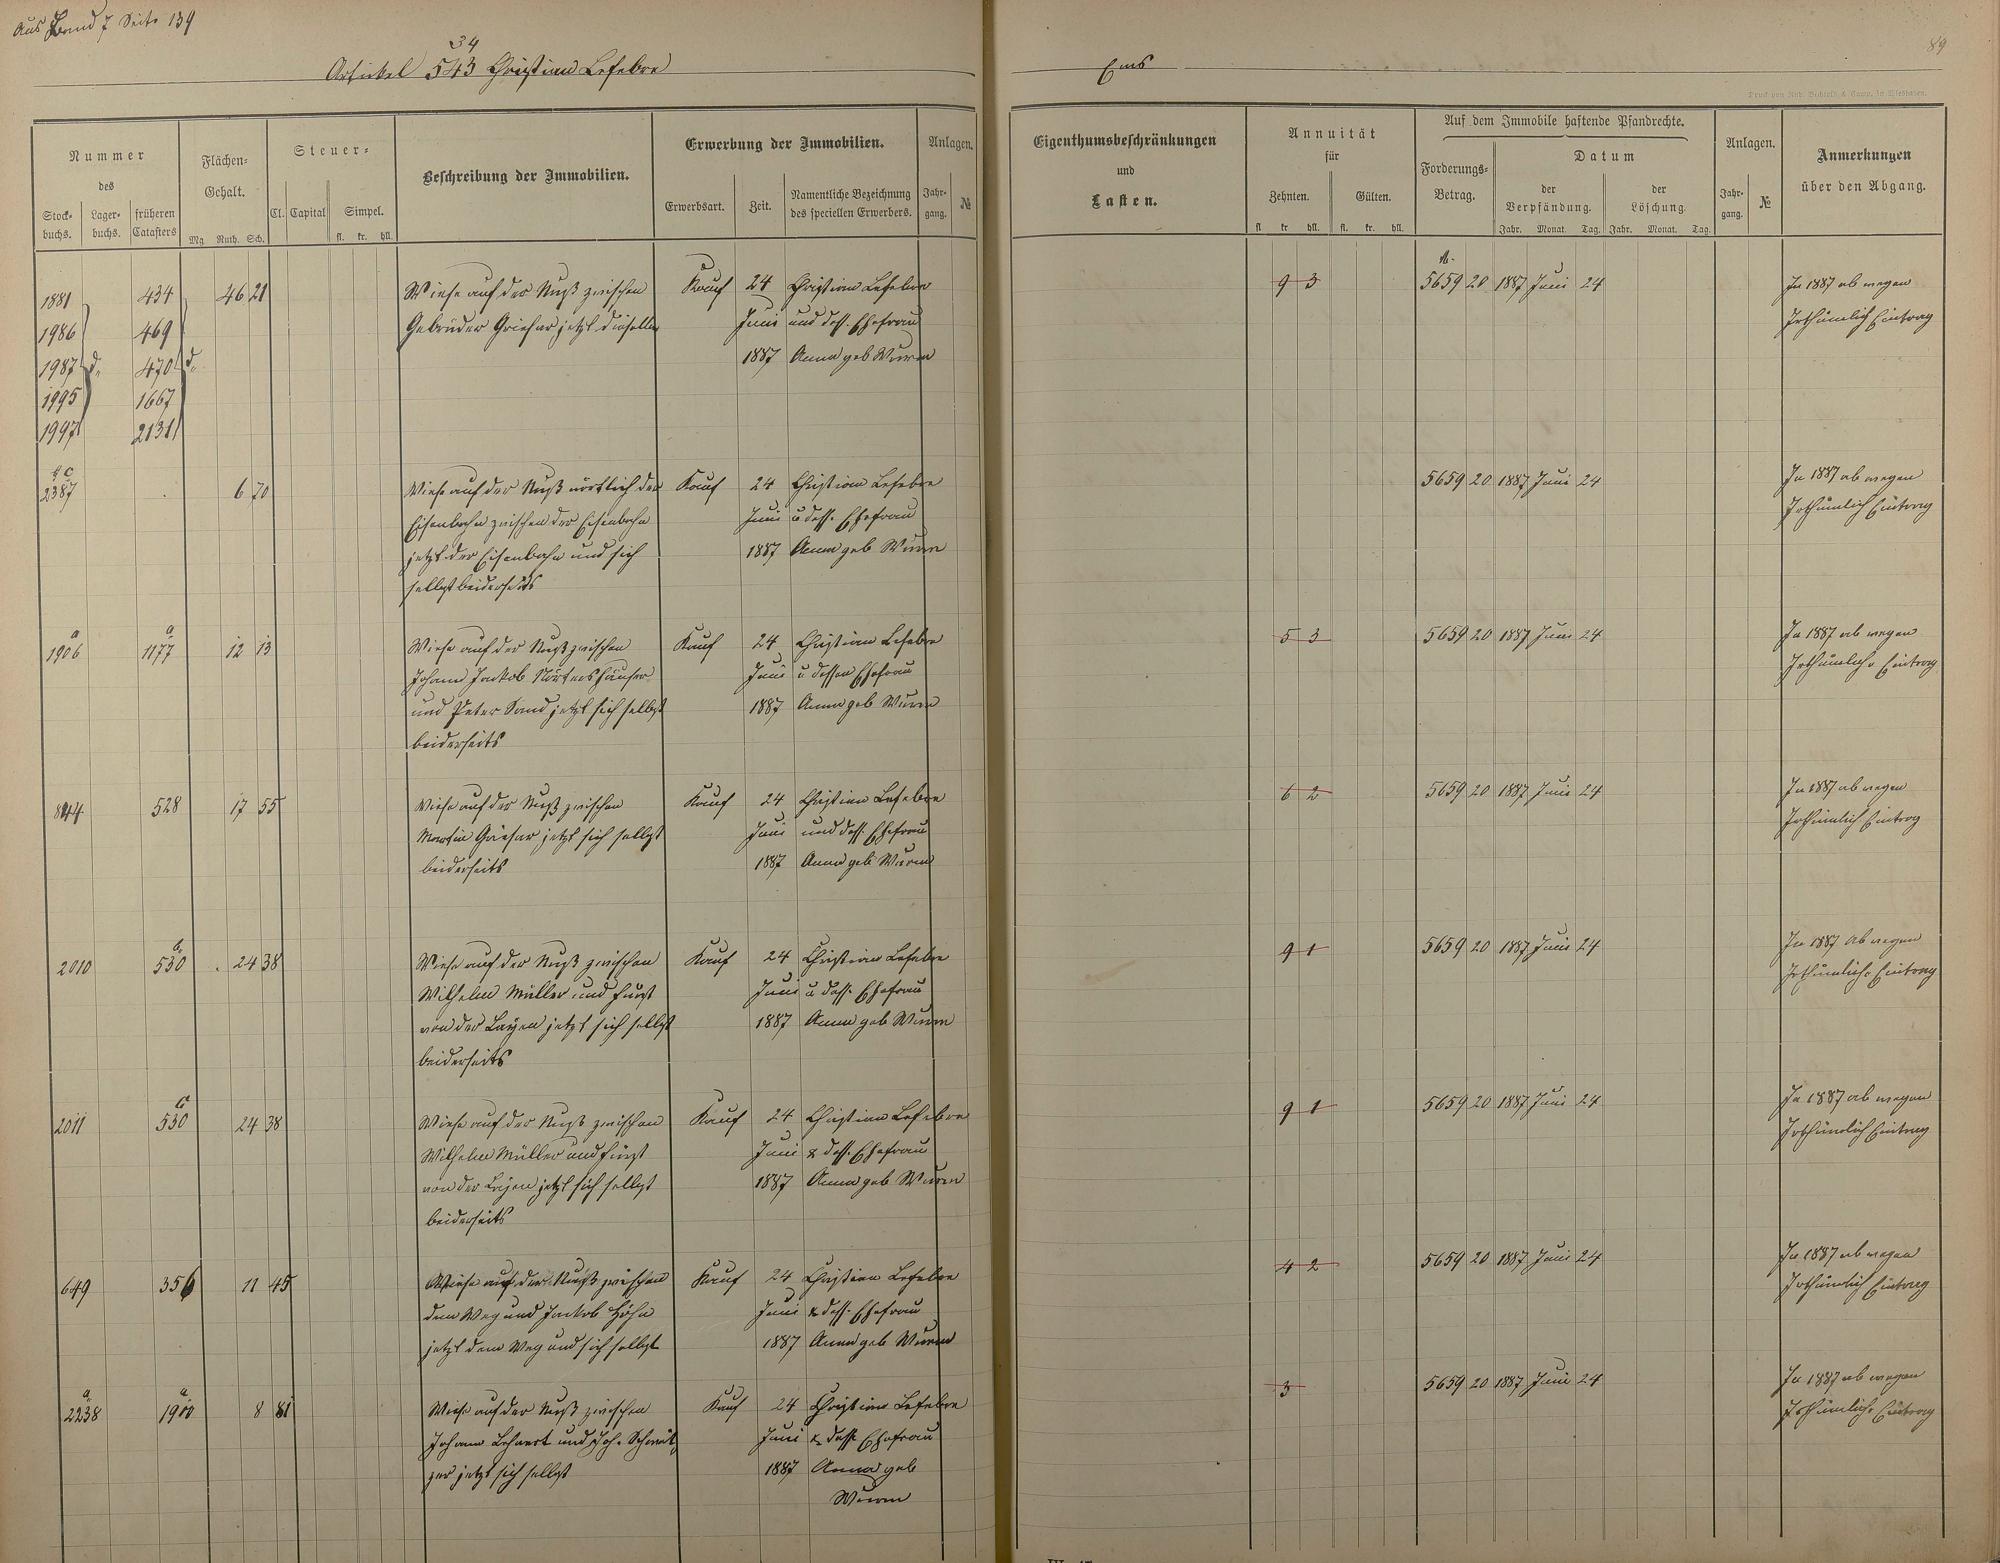 Aus Band 7 Seite 139
34
Artickel 543 Christian Lefebre
Ems
89
Druck von Rud. Bechtold & Comp. in Wiesbaden.
Nummer
des
Stock-
buchs.
Lager-
buchs.
früheren
Catasters
Flächen-
Gehalt.
Mg Ruth. Sch.
Steuer-
Cl. Capital Simpel.
fl. kr. hll.
Beschreibung der Immobilien.
Erwerbung der Immobilien.
Erwerbsart. Zeit.
Namentliche Bezeichnung
des speciellen Erwerbers.
Anlagen.
Jahr-
gang.
№
Eigenthumsbeschränkungen
und
Lasten.
Annuität
für
Zehnten. Gülten.
fl kr hll. fl. kr. hll.
Auf dem Immobile haftende Pfandrechte.
Forderungs-
Betrag.
Datum
der
Verpfändung.
der
Löschung.
Jahr. Monat. Tag. Jahr. Monat. Tag.
Anlagen.
Jahr-
gang.
№
Anmerkungen
über den Abgang.
1881 434 46 21 Wiese auf der Nuß zwischen Kauf 24 Christian Lefebre 9 3 5659 20 1887 Juni 24 In 1887 ab wegen
1986 469 Gebrüder Griesar jetzt dieselben Juni und dess. Ehefrau Irthümlich Eintrag
1987 d. 470 d. 1887 Anna geb Wurm
1995 1667
1997 2131
c
2387 6 70 Wiese auf der Nuß nörtlich der Kauf 24 Christian Lefebre 5659 20 1887 Juni 24 In 1887 ab wegen
Eisenbahn zwischen der Eisenbahn Juni u dess. Ehefrau Irthümlich Eintrag
jetzt der Eisenbahn und sich 1887 Anna geb Wurm
selbst beiderseits
a a
1906 1177 12 13 Wiese auf der Nuß zwischen Kauf 24 Christian Lefebre 5 3 5659 20 1887 Juni 24 In 1887 ab wegen
Johann Jackob Nörtershäuser Juni u dessen Ehefrau Irthümlich Eintrag
und Peter Sand jetzt sich selbst 1887 Anna geb Wurm
beiderseits
844 528 17 55 Wiese auf der Nuß zwischen Kauf 24 Christian Lefebre 6 2 5659 20 1887 Juni 24 In 1887 ab wegen
Martin Griesar jetzt sich selbst Juni und dess. Ehefrau Irthümlich Eintrag
beiderseits 1887 Anna geb Wurm
b
2010 530 24 38 Wiese auf der Nuß zwischen Kauf 24 Christian Lefebre 9 1 5659 20 1887 Juni 24 In 1887 ab wegen
Wilhelm Müller und Furst Juni u dess. Ehefrau Irthümlich Eintrag
von der Layen jetzt sich selbst 1887 Anna geb Wurm
beiderseits
2011 530 24 38 Wiese auf der Nuß zwischen Kauf 24 Christian Lefebre 9 1 5659 20 1887 Juni 24 In 1887 ab wegen
Wilhelm Müller und Fürst Juni & dess. Ehefrau Irthümlich Eintrag
von der Leyen jetzt sich selbst 1887 Anna geb Wurm
beiderseits
649 356 11 45 Wiese auf der Nuß zwischen Kauf 24 Christian Lefebre 4 2 5659 20 1887 Juni 24 In 1887 ab wegen
dem Weg und Jackob Höhn Juni & dess. Ehefrau Irthümlich Eintrag
jetzt dem Weg und sich selbst 1887 Anna geb Wurm
a a
2238 1900 8 81 Wiese auf der Nuß zwischen Kauf 24 Christian Lefebre 3 5659 20 1887 Juni 24 In 1887 ab wegen
Johann Lehnert und Joh. Schmit- Juni & dess Ehefrau Irthümlich Eintrag
zer jetzt sich selbst 1887 Anna geb
Wurm